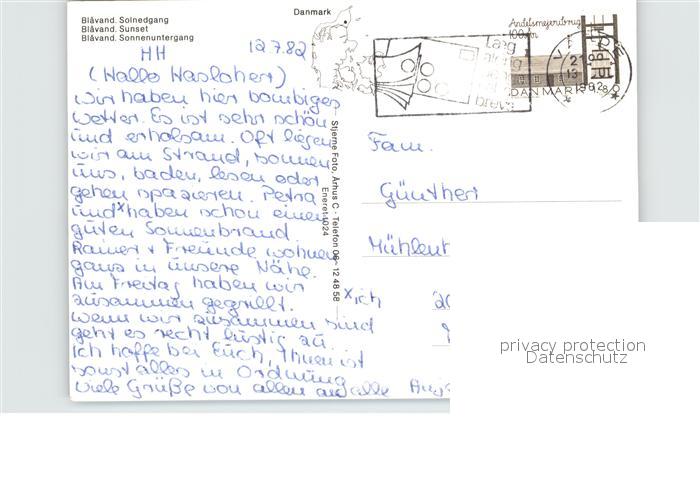 Blåvand. Solnedgang
Blåvand. Sunset
Blåvand. Sonnenuntergang
Danmark
HH 12.7.82
(Hallo Hasloher)
Wir haben hier bombiges
Wetter. Es ist sehr schön
und erholsam. Oft liegen
wir am Strand, sonnen
uns, baden, lesen oder
gehen spazieren. Petra
und x haben schon einen
guten Sonnenbrand.
Rainer + Freunde wohnen
ganz in unsere Nähe.
Am Freitag haben wir
zusammen gegrillt.
Wenn wir zusammen sind
geht es recht lustig zu.
Ich hoffe bei Euch, Ihnen ist
sonst alles in Ordnung
viele Grüße von allen an alle
x ich
Stjerne Foto, Århus C - Telefon 06 - 12 48 58
Eneret 1024
Andelsmejeribrug
100 år
DANMARK
1982
Fam.
Günther
Mühlen
20
privacy protection
Datenschutz